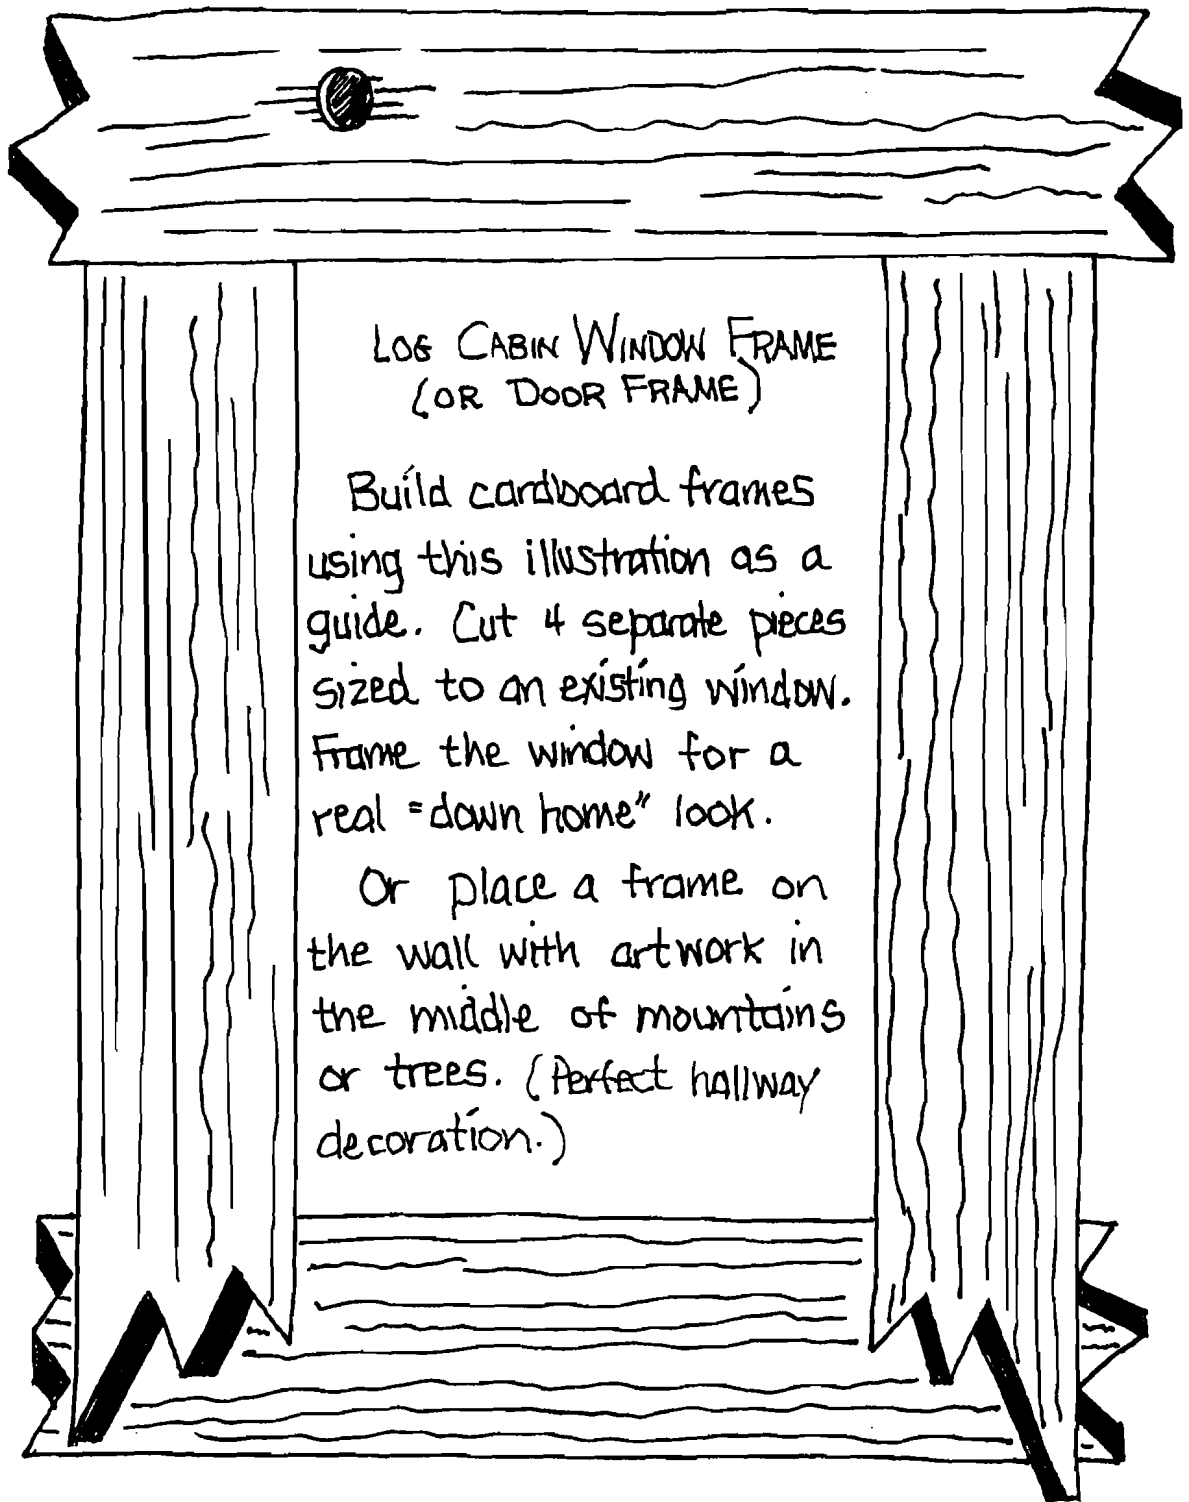 LOG CABIN WINDOW FRAME
(OR DOOR FRAME)
Build cardboard frames
using this illustration as a
guide. Cut 4 separate pieces
sized to an existing window.
Frame the window for a
real "down home" look.
Or place a frame on
the wall with artwork in
the middle of mountains
or trees. (Perfect hallway
decoration.)